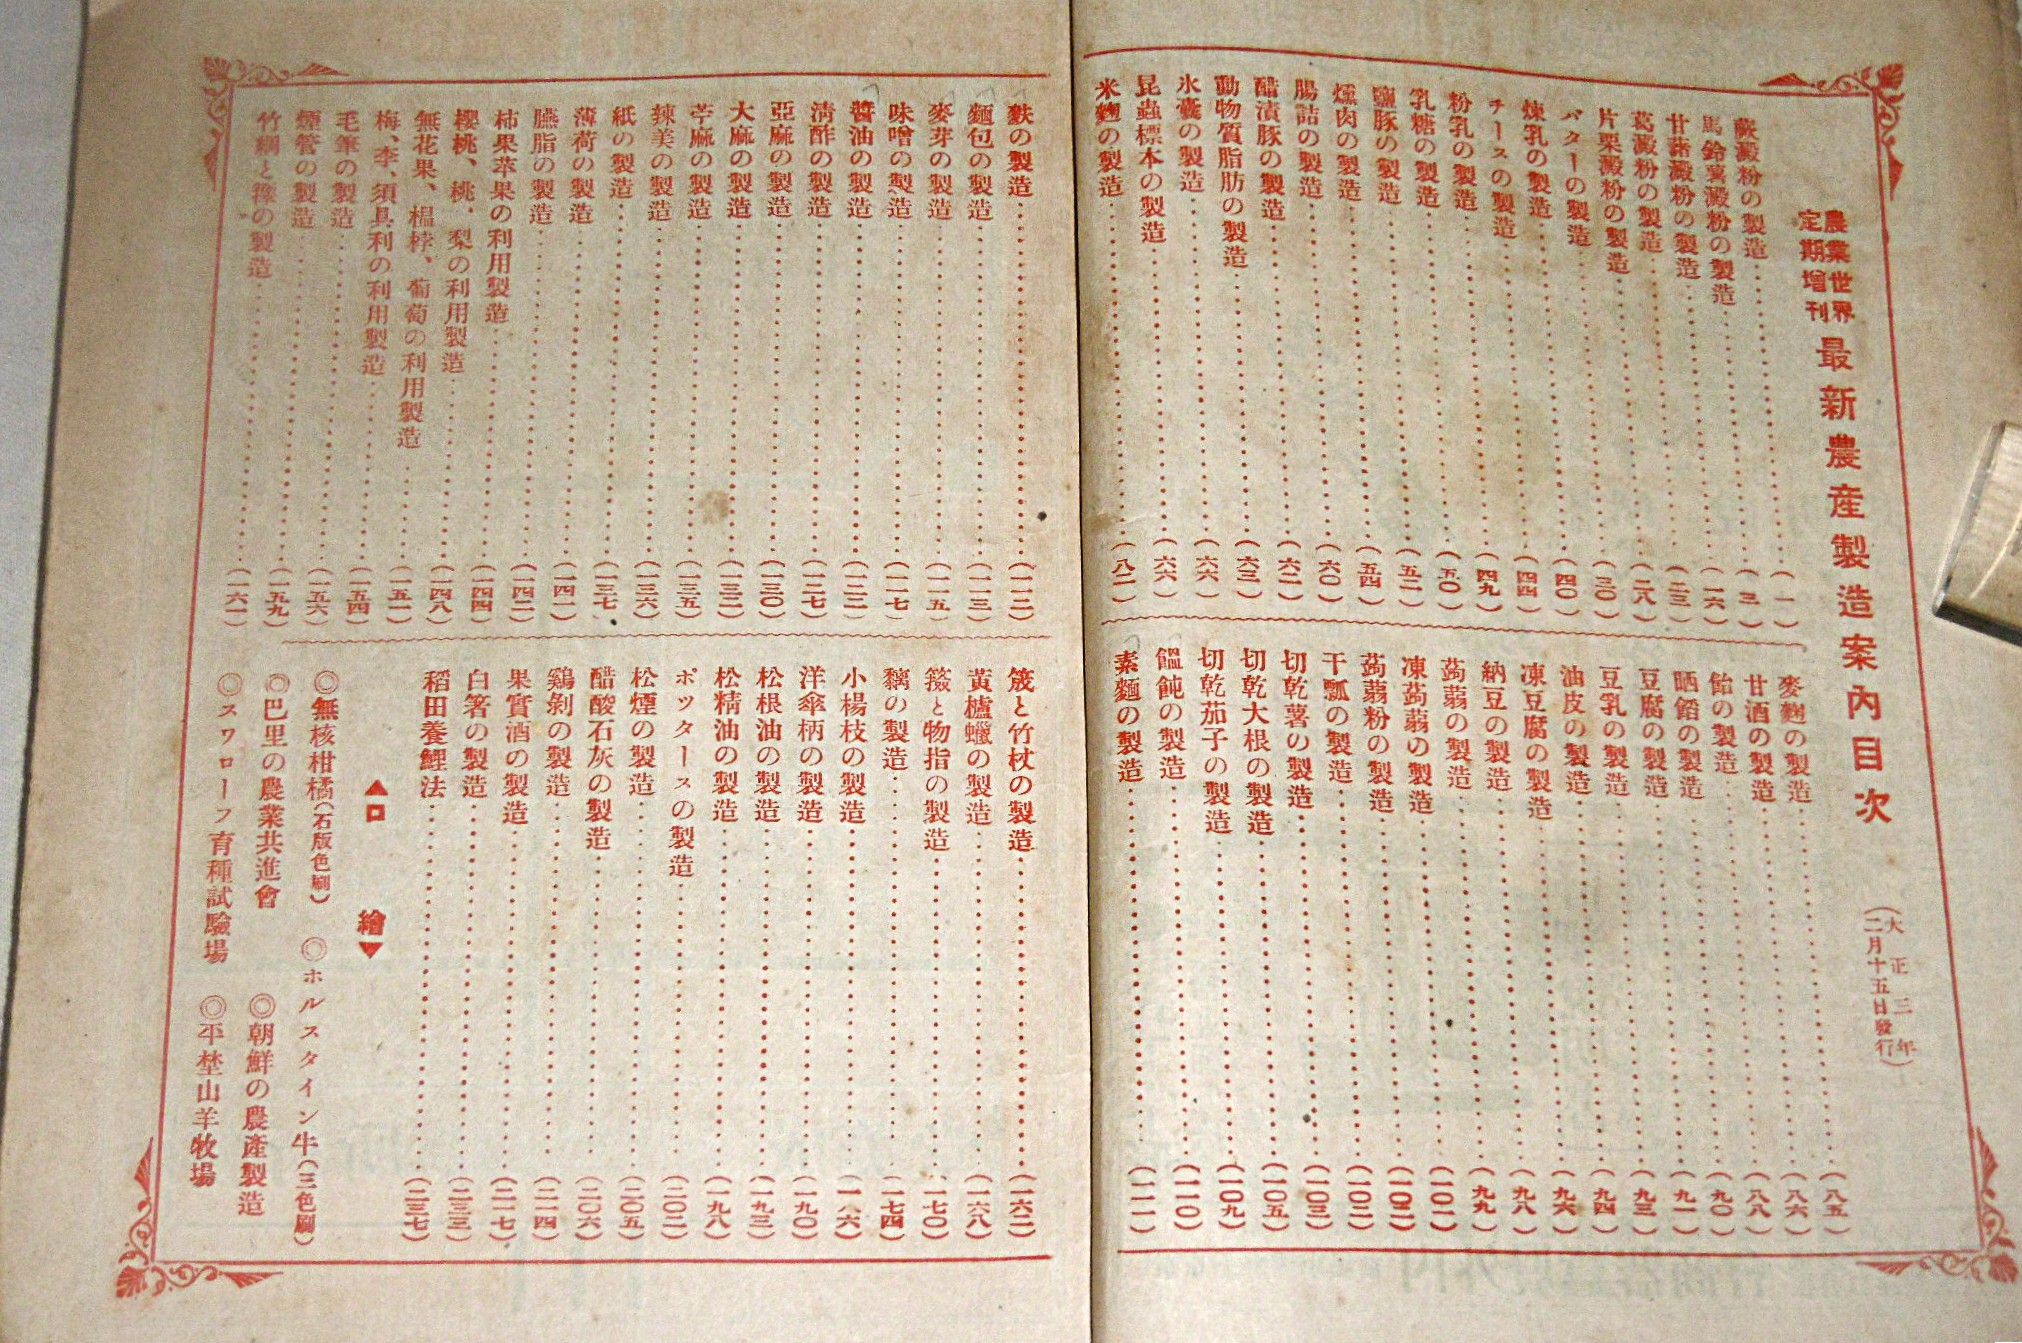 農業世界
定期増刊
最新農産製造案内目次
(大正三年
二月十五日發行)
蕨澱粉の製造 (一)
馬鈴薯澱粉の製造 (三)
甘藷澱粉の製造 (一六)
葛澱粉の製造 (二三)
片栗澱粉の製造 (二八)
バターの製造 (三〇)
煉乳の製造 (四〇)
チースの製造 (四四)
粉乳の製造 (四九)
乳糖の製造 (五〇)
鹽豚の製造 (五二)
燻肉の製造 (五四)
腸詰の製造 (六〇)
醋漬豚の製造 (六二)
動物質脂肪の製造 (六三)
氷嚢の製造 (六六)
昆蟲標本の製造 (六六)
米麹の製造 (八二)
麥麹の製造 (八五)
甘酒の製造 (八六)
飴の製造 (八八)
晒餡の製造 (九〇)
豆腐の製造 (九一)
豆乳の製造 (九三)
油皮の製造 (九四)
凍豆腐の製造 (九六)
納豆の製造 (九八)
蒟蒻の製造 (九九)
凍蒟蒻の製造 (一〇一)
蒟蒻粉の製造 (一〇二)
干瓢の製造 (一〇二)
切乾薯の製造 (一〇三)
切乾大根の製造 (一〇五)
切乾茄子の製造 (一〇九)
饂飩の製造 (一一〇)
素麵の製造 (一一一)
麩の製造 (一一二)
麵包の製造 (一一三)
麥芽の製造 (一一五)
味噌の製造 (一一七)
醬油の製造 (一二二)
清酢の製造 (一二七)
亞麻の製造 (一三〇)
大麻の製造 (一三二)
苧麻の製造 (一三五)
辣美の製造 (一三六)
紙の製造 (一三七)
薄荷の製造 (一四一)
臙脂の製造 (一四二)
柿果苹果の利用製造 (一四四)
櫻桃、桃、梨の利用製造 (一四八)
無花果、榲桲、葡萄の利用製造 (一五一)
梅、李、須具利の利用製造 (一五四)
毛筆の製造 (一五六)
煙管の製造 (一五九)
竹綱と簾の製造 (一六一)
筬と竹杖の製造 (一六二)
黄櫨蠟の製造 (一六八)
と物指の製造 (一七〇)
黐の製造 (一七四)
小楊枝の製造 (一八六)
洋傘柄の製造 (一九〇)
松根油の製造 (一九三)
松精油の製造 (一九八)
ポッタースの製造 (二〇二)
松煙の製造 (二〇五)
醋酸石灰の製造 (二〇六)
鷄剝の製造 (二一四)
果實酒の製造 (二一七)
白箸の製造 (二三三)
稻田養鯉法 (二三七)
▲口繪▼
◎無核柑橘(石版色刷) ◎ホルスタイン牛(三色刷)
◎巴里の農業共進會 ◎朝鮮の農産製造
◎スワローフ育種試驗場 ◎平埜山羊牧場